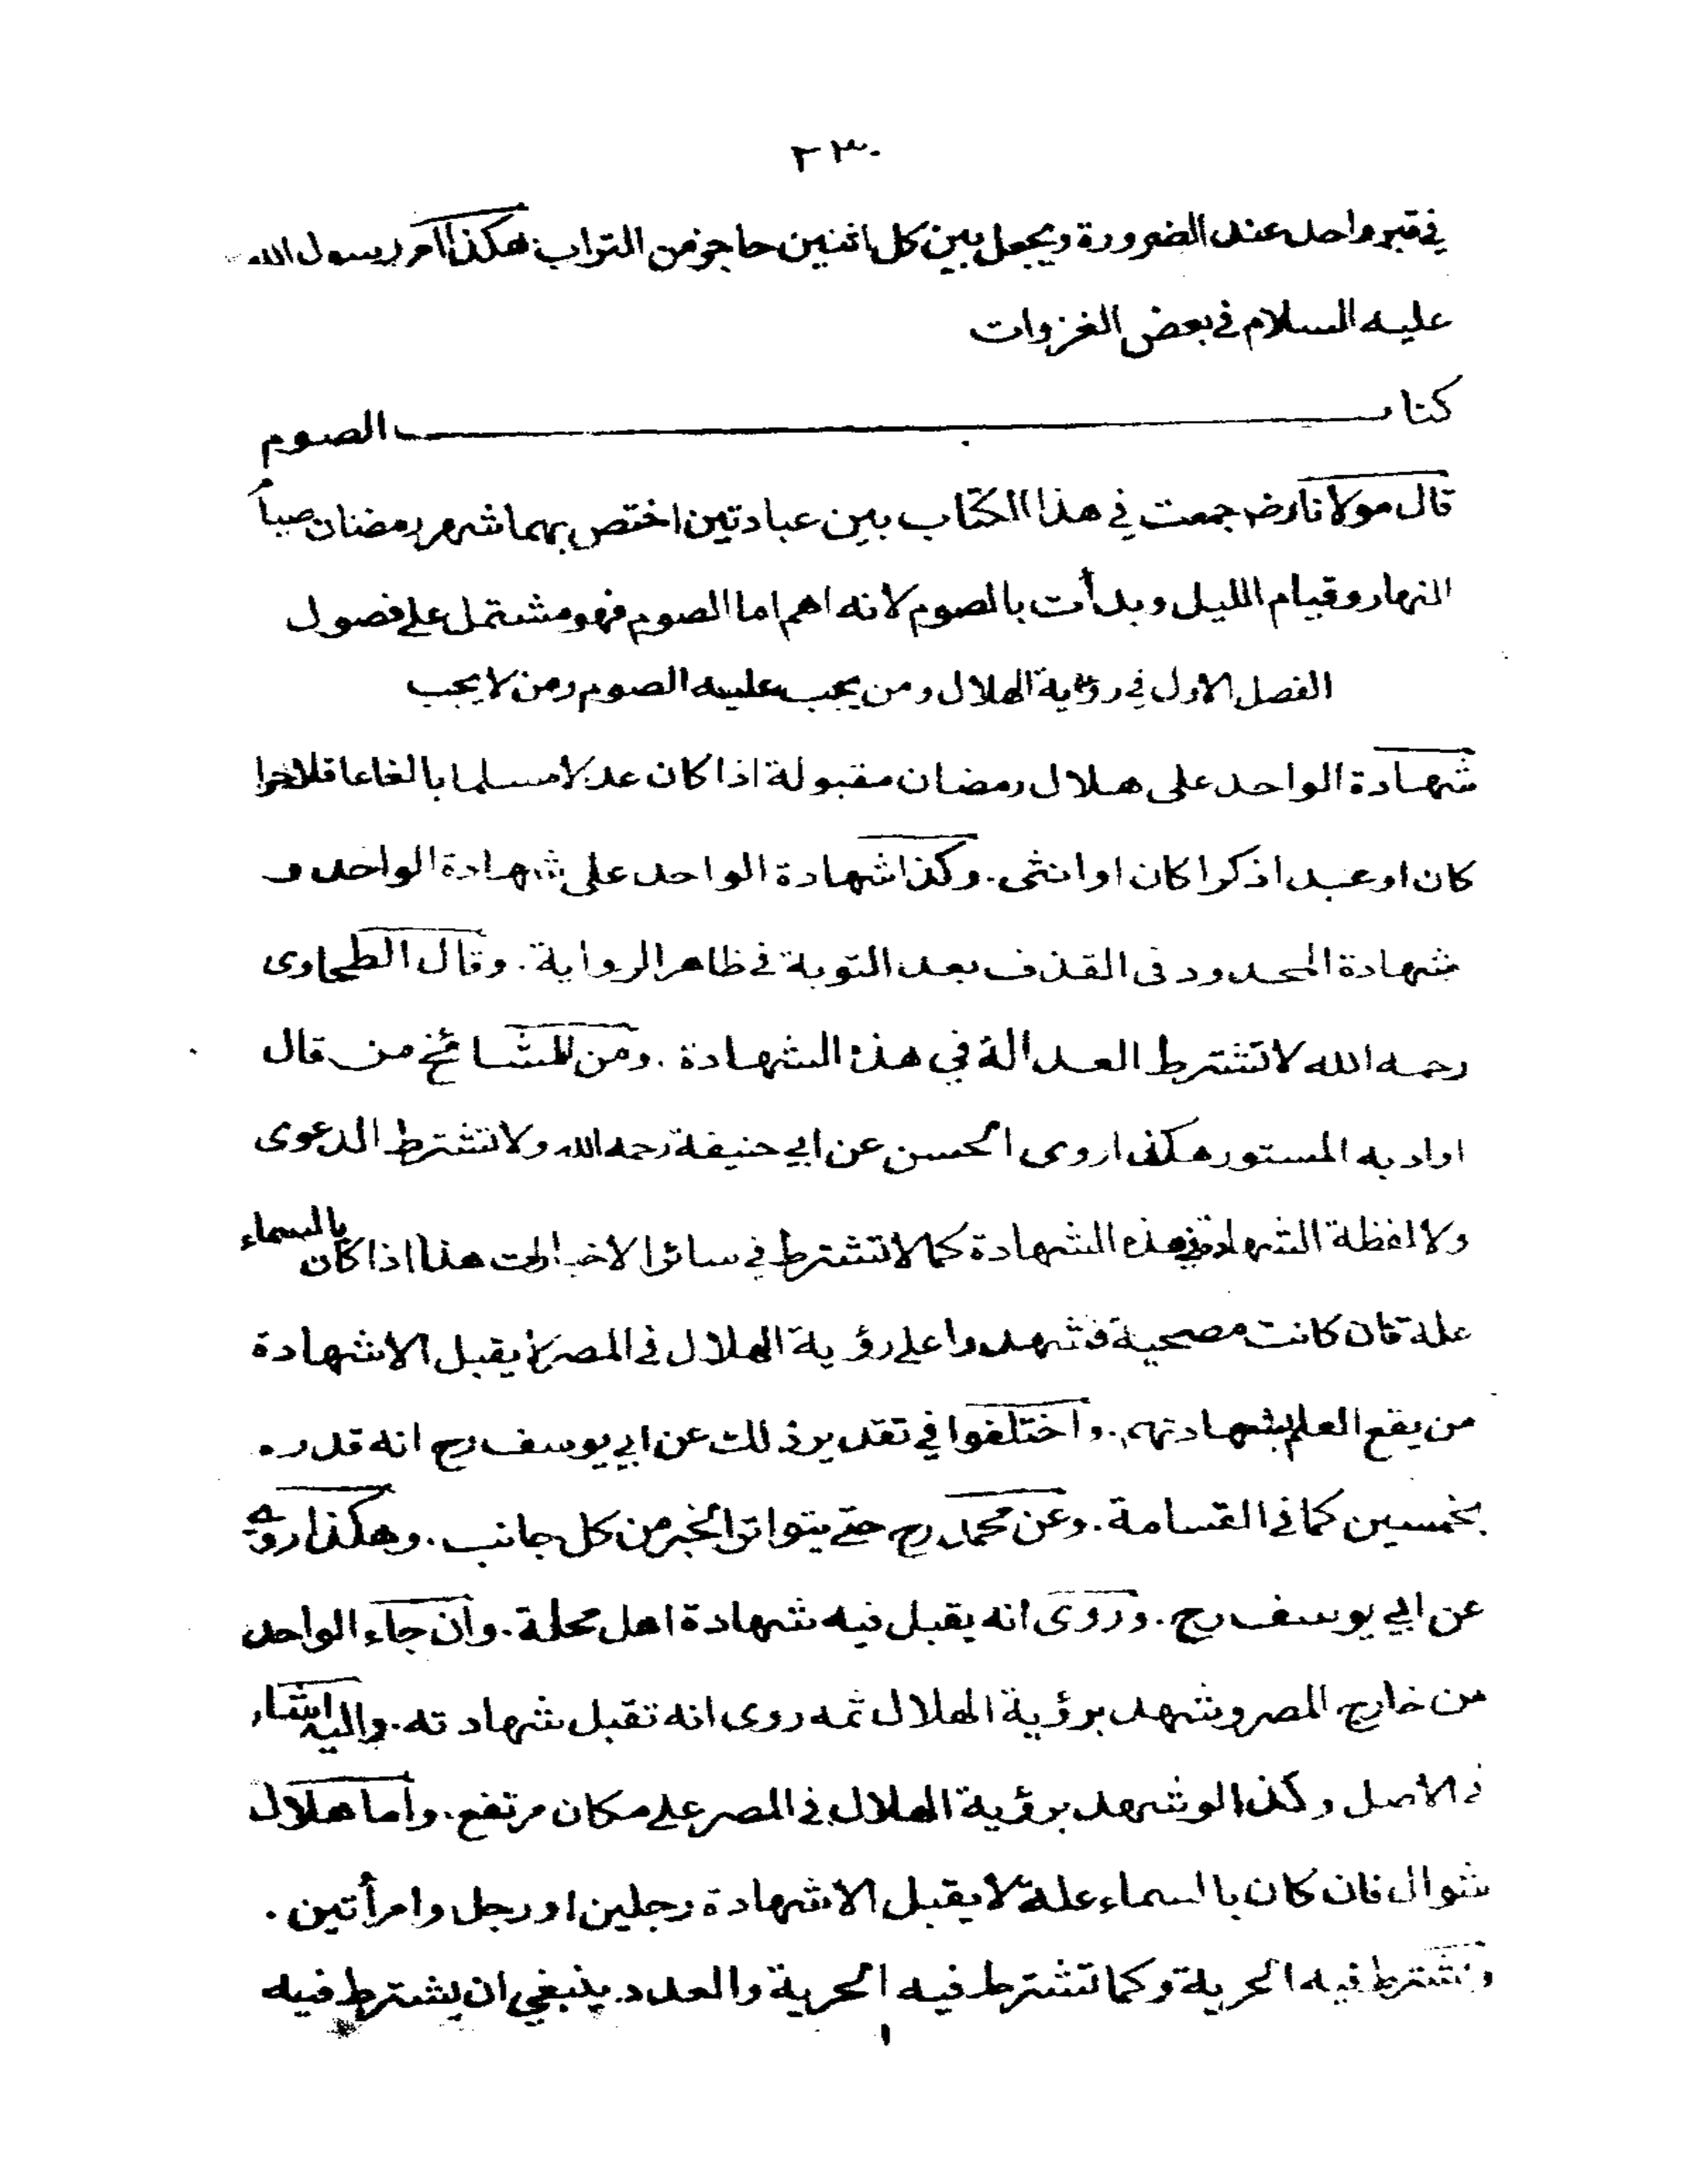 ٢٣٠
في قبر واحد عند الضرورة ويجعل بين كل اثنين حاجز من التراب هكذا امر رسول الله
عليه السلام في بعض الغزوات
كتاب الصوم
قال مولانا رض جمعت في هذا الكتاب بين عبادتين اختص بهما شهر رمضان صيام
النهار وقيام الليل وبدأت بالصوم لانه اهم اما الصوم فهو مشتمل على فصول
الفصل الاول في رؤية الهلال ومن يجب عليه الصوم ومن لا يجب
شهادة الواحد على هلال رمضان مقبولة اذا كان عدلا مسلما بالغا عاقلا حرا
كان او عبدا ذكرا كان او انثى. وكذا شهادة الواحد على شهادة الواحد و
شهادة المحدود في القذف بعد التوبة في ظاهر الرواية. وقال الطحاوى
رحمه الله لا تشترط العدالة في هذه الشهادة. ومن المشائخ من قال
اراد به المستور هكذا روى الحسن عن ابي حنيفة رحمه الله ولا تشترط الدعوى
ولا لفظة الشهادة في هذه الشهادة كما لا تشترط في سائر الاخبارات هذا اذا كان بالسماء
علة فان كانت مصحية فشهدوا على رؤية الهلال في المصر لا يقبل الا شهادة
من يقع العلم بشهادتهم. واختلفوا في تقدير ذلك عن ابي يوسف رح انه قدره
بخمسين كما في القسامة. وعن محمد رح حتى يتواتر الخبر من كل جانب. وهكذا روى
عن ابي يوسف رح. وروى انه يقبل فيه شهادة اهل محلة. وان جاء الواحد
من خارج المصر وشهد برؤية الهلال ثمه روى انه تقبل شهادته. واليه اشار
في الاصل وكذا لو شهد برؤية الهلال في المصر على مكان مرتفع. واما هلال
شوال فان كان بالسماء علة لا يقبل الا شهادة رجلين او رجل وامرأتين.
وتشترط فيه الحرية وكما تشترط فيه الحرية والعدد ينبغي ان يشترط فيه